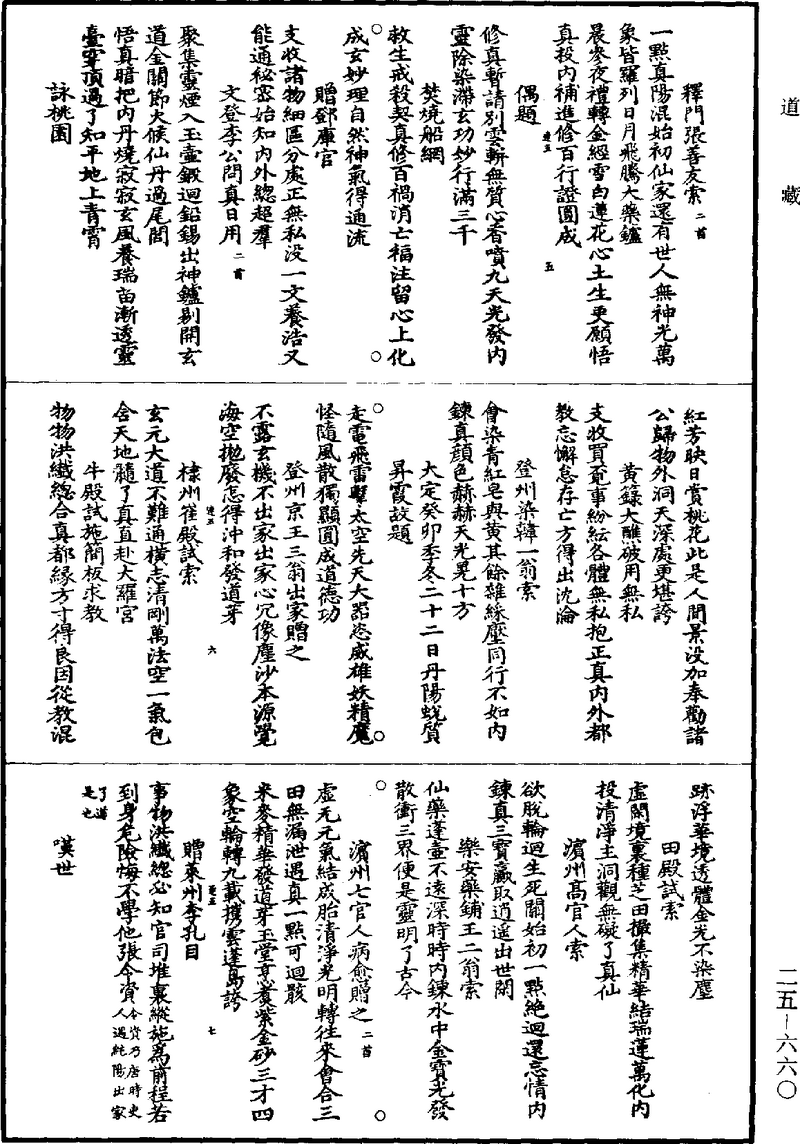 道藏
釋門張善友索二首
一點真陽混始初仙家還有世人無神光萬
象皆羅列日月飛騰大藥鑪
晨參夜禮轉金經雪白蓮花心土生更願悟
真投內補進修百行證圓成
五
偶題
修真暫請別雲軿無質心香噴九天光發內
靈除染滯玄功妙行滿三千
焚燒船網
救生戒殺契真修百禍消亡福注留心上化
成玄妙理自然神氣得通流
贈鄧庫官
支收諸物細區分處正無私没一文養浩又
能通秘密始知內外總超羣
文登李公問真日用二首
聚集靈煙入玉壺鍛迴鉛錫出神鑪剔開玄
道金關節火候仙丹過尾閭
悟真暗把內丹燒寂寂玄風養瑞苗漸透靈
臺穿頂過了知平地上青霄
詠桃園
紅芳映日賞桃花此是人間景没加奉勸諸
公歸物外洞天深處更堪誇
黃籙大醮破用無私
支收買賣事紛紜各體無私抱正真內外都
教忘懈怠存亡方得出沈淪
登州染韓一翁索
會染青紅皂與黃其餘雜綵壓同行不如內
鍊真顏色赫赫天光晃十方
大定癸卯季冬二十二日丹陽蛻質
昇霞故題
走電飛雷擊太空先天大器恣威雄妖精魔
怪隨風散獨顯圓成道德功
登州京王三翁出家贈之
不露玄機不出家出家心冗像塵沙本源覺
海空拋廢怎得沖和發道芽
棣州崔殿試索
六
玄元大道不難通橫志清剛萬法空一氣包
含天地髓了真直赴大羅宮
牛殿試施簡板求教
物物洪纖總合真都緣方寸得良因從教混
跡浮華境透體金光不染塵
田殿試索
虛閑境裏種芝田撒集精華結瑞蓮萬化內
投清淨主洞觀無礙了真仙
濱州高官人索
欲脫輪迴生死關始初一點絶迴還忘情內
鍊真三寶贏取逍遙出世間
樂安藥鋪王二翁索
仙藥蓬壺不遠深時時內鍊水中金寶光發
散衝三界便是靈明了古今
濱州七官人病愈贈之二首
虛无元氣結成胎清淨光明轉往來會合三
田無漏泄遇真一點可迴骸
來麥精華發道芽玉堂烹煑紫金砂三才四
象空輪轉九載攜雲蓬島誇
七
贈萊州李孔目
事物洪纖總必知官司堆裏縱施爲前程若
到身危險悔不學他張令資令資乃唐時吏人遇純陽出家
了道是也
嘆世
二五—六六〇